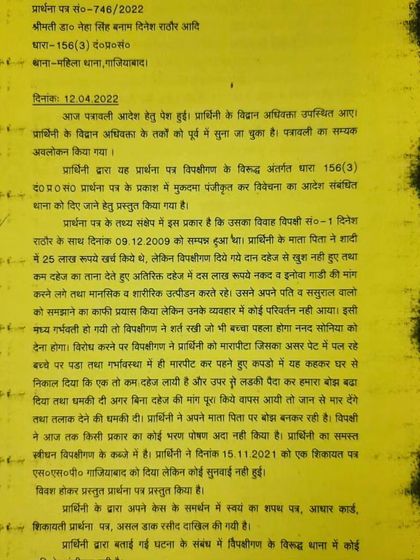 प्रार्थना पत्र सं०-746/2022
श्रीमती डा० नेहा सिंह बनाम दिनेश राठौर आदि
धारा-156(3) दं०प्र०सं०
थाना-महिला थाना,गाजियाबाद।
दिनांकः 12.04.2022
आज पत्रावली आदेश हेतु पेश हुई। प्रार्थिनी के विद्वान अधिवक्ता उपस्थित आए।
प्रार्थिनी के विद्वान अधिवक्ता के तर्कों को पूर्व में सुना जा चुका है। पत्रावली का सम्यक
अवलोकन किया गया ।
प्रार्थिनी द्वारा यह प्रार्थना पत्र विपक्षीगण के विरूद्ध अंतर्गत धारा 156(3)
दं०प्र०सं० प्रार्थना पत्र के प्रकाश में मुकदमा पंजीकृत कर विवेचना का आदेश संबंधित
थाना को दिए जाने हेतु प्रस्तुत किया गया है।
प्रार्थना पत्र के तथ्य संक्षेप में इस प्रकार है कि उसका विवाह विपक्षी सं०-1 दिनेश
राठौर के साथ दिनांक 09.12.2009 को सम्पन्न हुआ था। प्रार्थिनी के माता पिता ने शादी
में 25 लाख रूपये खर्च किये थे, लेकिन विपक्षीगण दिये गये दान दहेज से खुश नही हुए तथा
कम दहेज का ताना देते हुए अतिरिक्त दहेज में दस लाख रूपये नकद व इनोवा गाडी की मांग
करने लगे तथा मानसिक व शारीरिक उत्पीडन करते रहे। उसने अपने पति व ससुराल वालो
को समझाने का काफी प्रयास किया लेकिन उनके व्यवहार में कोई परिवर्तन नही आया। इसी
मध्य गर्भवती हो गयी तो विपक्षीगण ने शर्त रखी जो भी बच्चा पहला होगा ननद सोनिया को
देना होगा। विरोध करने पर विपक्षीगण ने प्रार्थिनी को मारापीटा जिसका असर पेट में पल रहे
बच्चे पर पडा तथा गर्भावस्था में ही मारपीट कर पहने हुए कपडों में यह कहकर घर से
निकाल दिया कि एक तो कम दहेज लायी है और उपर से लडकी पैदा कर हमारा बोझ बढा
दिया तथा धमकी दी अगर बिना दहेज की मांग पूरा किये वापस आयी तो जान से मार देंगे
तथा तलाक देने की धमकी दी। प्रार्थिनी ने अपने माता पिता पर बोझ बनकर रही है। विपक्षी
ने आज तक किसी प्रकार का कोई भरण पोषण अदा नही किया है। प्रार्थिनी का समस्त
स्त्रीधन विपक्षीगण के कब्जे में है। प्रार्थिनी ने दिनांक 15.11.2021 को एक शिकायत पत्र
एस०एस०पी० गाजियाबाद को दिया लेकिन कोई सुनवाई नही हुई।
विवश होकर प्रस्तुत प्रार्थना पत्र प्रस्तुत किया है।
प्रार्थिनी के द्वारा अपने केस के समर्थन में स्वयं का शपथ पत्र, आधार कार्ड,
शिकायती प्रार्थना पत्र, असल डाक रसीद दाखिल की गयी है।
प्रार्थिनी द्वारा बताई गई घटना के संबंध में विपक्षीगण के विरूद्ध थाना में कोई